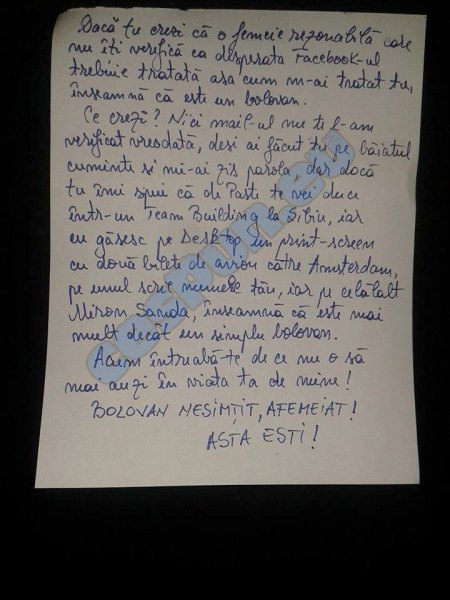 Dacă tu crezi că o femeie rezonabilă care
nu îți verifică ca disperata Facebook-ul
trebuie tratată asa cum m-ai tratat tu,
înseamnă că este un bolovan.
Ce crezi? Nici mail-ul nu ti l-am
verificat vreodată, desi ai făcut tu pe băiatul
cuminte si mi-ai zis parola, dar dacă
tu îmi spui că de Paste te vei duce
într-un Team Building la Sibiu, iar
eu găsesc pe Desktop un print-screen
cu două bilete de avion către Amsterdam,
pe unul scrie numele tău, iar pe celălalt
Miron Sanda, înseamnă că este mai
mult decât un simplu bolovan.
Acum întreabă-te de ce nu o să
mai auzi în viata ta de mine!
BOLOVAN NESIMȚIT, AFEMEIAT!
ASTA EȘTI!